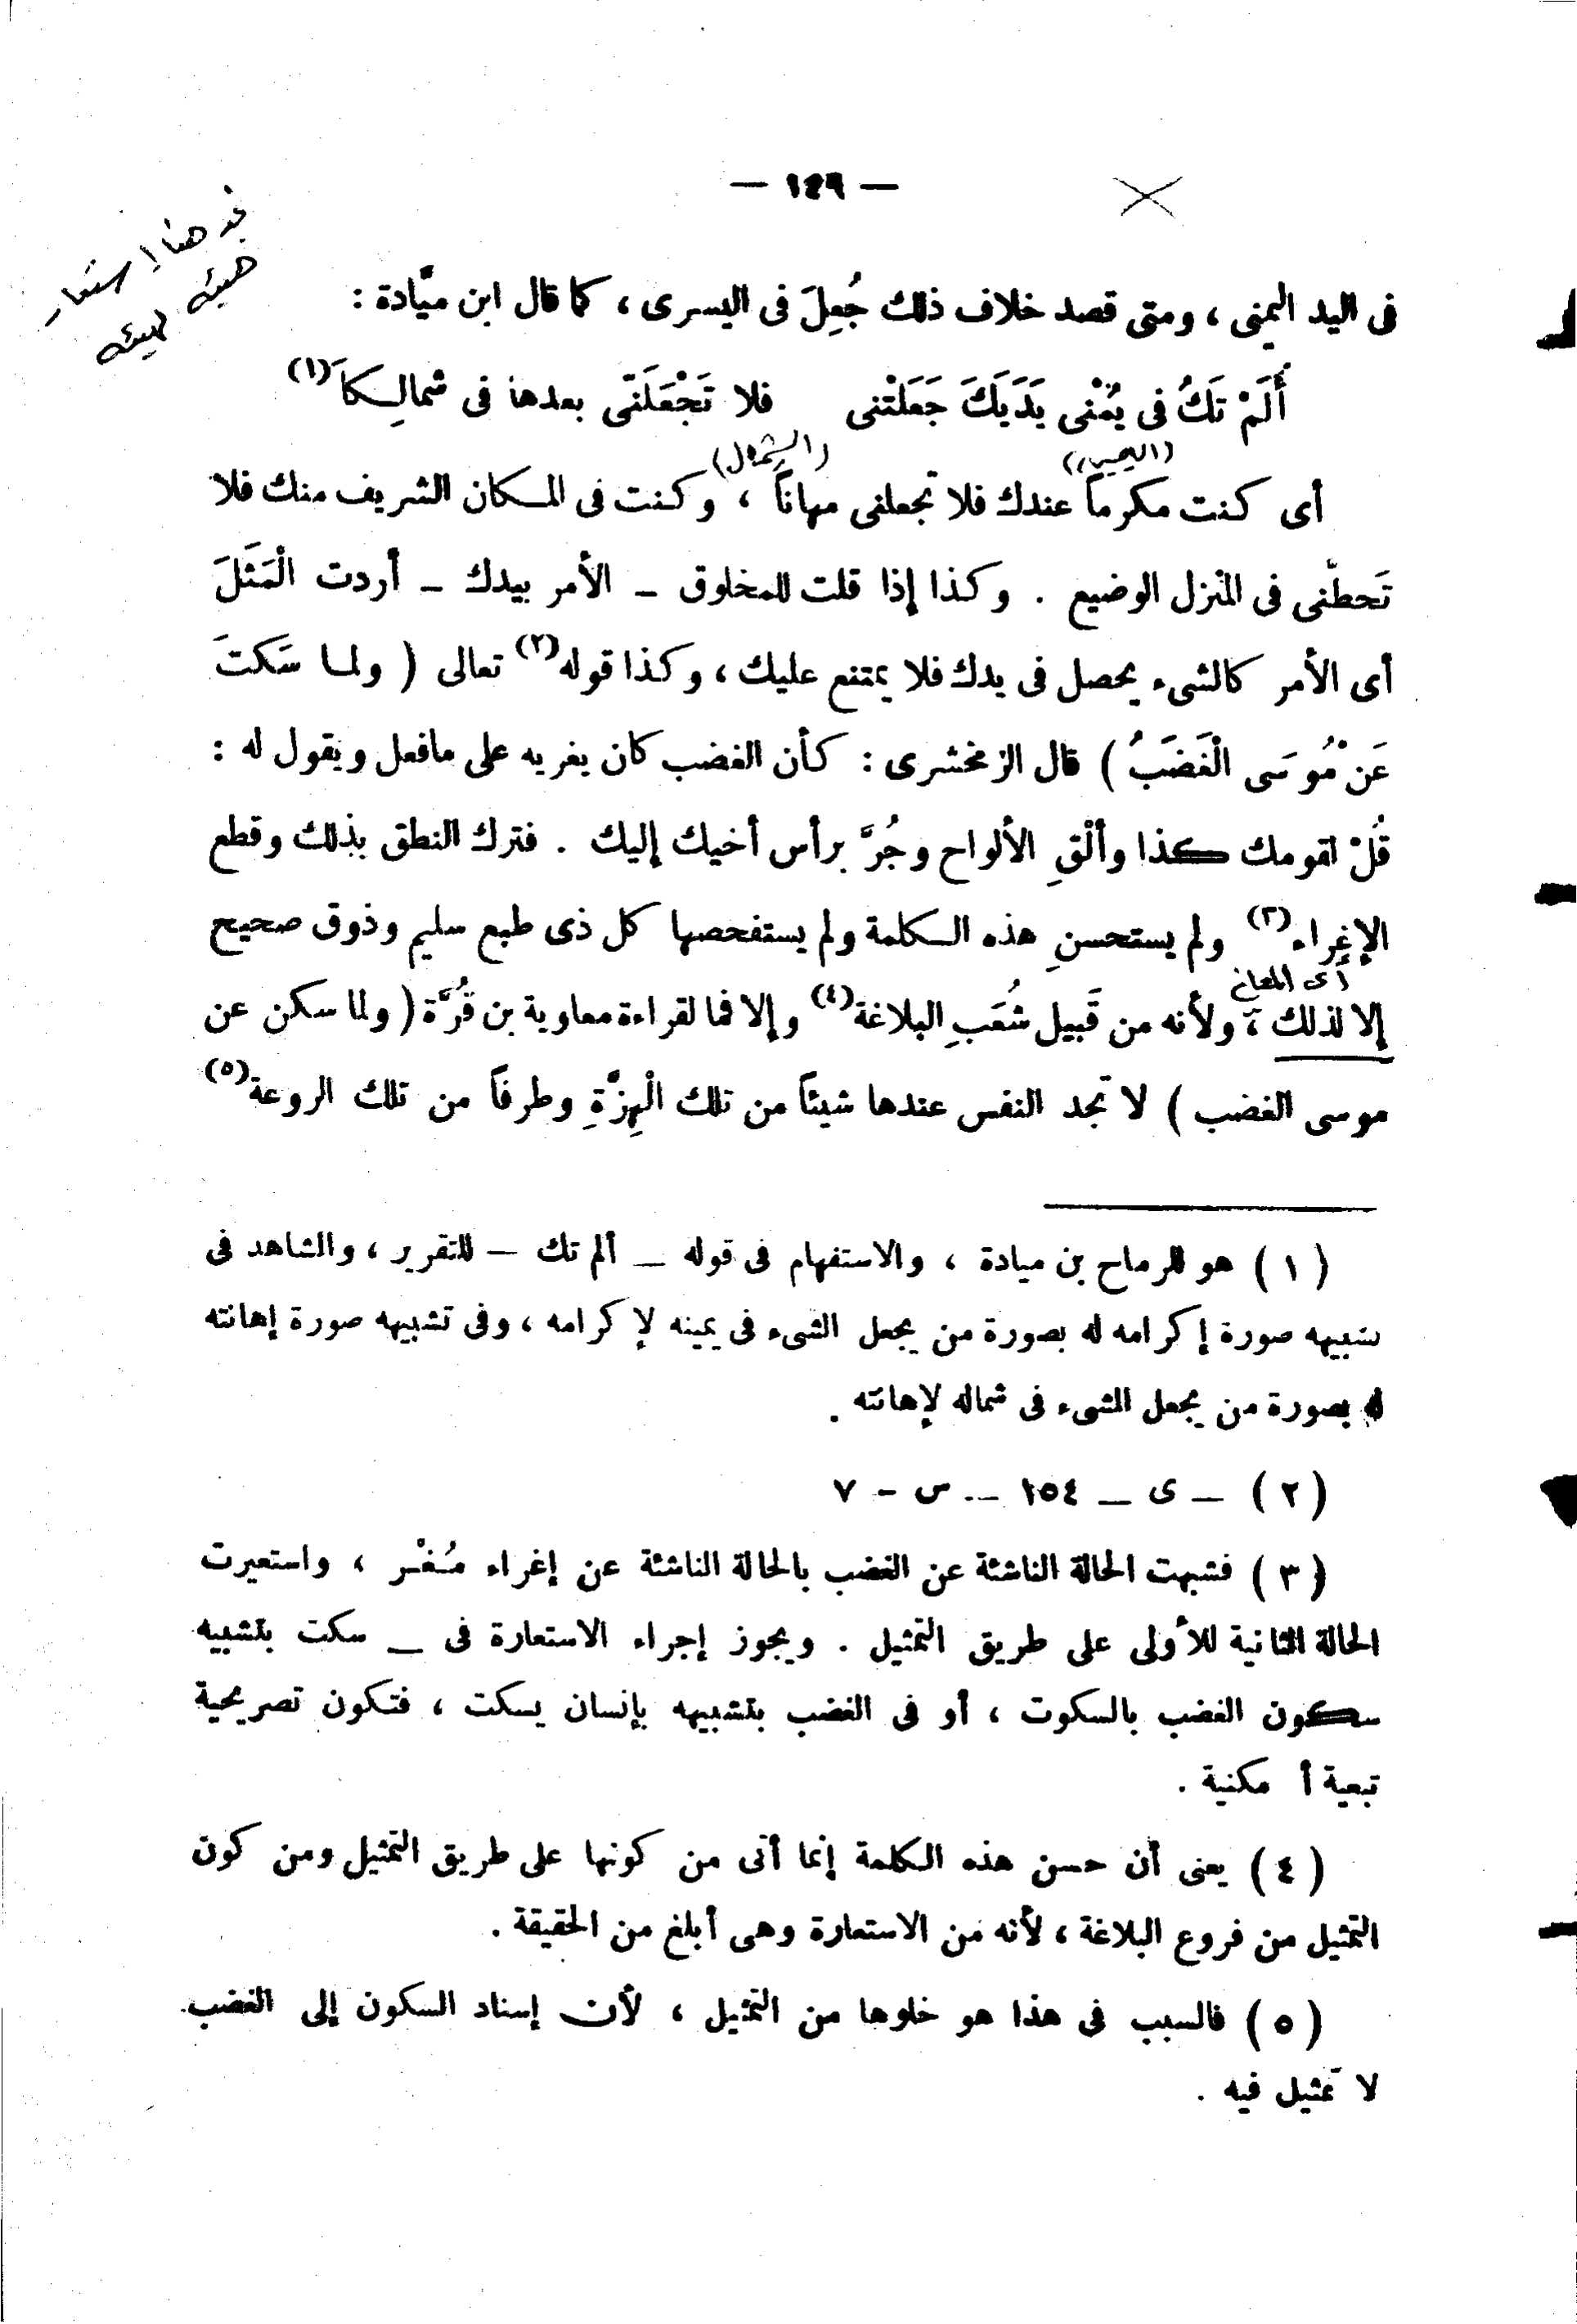 — ١٤٩ —
نجد هنا استعار
هيئة
لهيئة
فى اليد اليمنى ، ومتى قصد خلاف ذلك جُعِلَ فى اليسرى ، كما قال ابن ميَّادة :
أَلَمْ تَكُ فى يُمْنى يَدَيكَ جَعَلتْنى فلا تَجْعَلَنّى بعدها فى شمالِكَا (١)
(اليمين) (الشمال)
أى كنت مكرماً عندك فلا تجعلنى مهاناً ، وكنت فى المكان الشريف منك فلا
تَحطّنى فى المنزل الوضيع . وكذا إذا قلت للمخلوق – الأمر بيدك – أردت الْمَثَلَ
أى الأمر كالشىء يحصل فى يدك فلا يمتنع عليك ، وكذا قوله (٢) تعالى ( ولما سَكتَ
عَنْ مُوسَى الْغَضَبُ ) قال الزمخشرى : كأن الغضب كان يغريه على مافعل ويقول له :
قُلْ لقومك كذا وألْقِ الألواح وجُرَّ برأس أخيك إليك . فترك النطق بذلك وقطع
الإغراء (٣) ولم يستحسنِ هذه الكلمة ولم يستفحصها كل ذى طبع سليم وذوق صحيح
أى
إلا لذلك ، ولأنه من قَبيل شُعَبِ البلاغة (٤) وإلا فما لقراءة معاوية بن قُرَّة ( ولما سكن عن
موسى الغضب ) لا تجد النفس عندها شيئاً من تلك الْهِزَّةِ وطرفاً من تلك الروعة (٥)
( ١ ) هو للرماح بن ميادة ، والاستفهام فى قوله – ألم تك – للتقرير ، والشاهد فى
تشبيه صورة إكرامه له بصورة من يجعل الشىء فى يمينه لإكرامه ، وفى تشبيه صورة إهانته
له بصورة من يجعل الشىء فى شماله لإهانته .
( ٢ ) – ى – ١٥٤ – س – ٧
( ٣ ) فشبهت الحالة الناشئة عن الغضب بالحالة الناشئة عن إغراء مُغْر ، واستعيرت
الحالة الثانية للأولى على طريق التمثيل . ويجوز إجراء الاستعارة فى – سكت بتشبيه
سكون الغضب بالسكوت ، أو فى الغضب بتشبيهه بإنسان يسكت ، فتكون تصريحية
تبعية أ مكنية .
( ٤ ) يعنى أن حسن هذه الكلمة إنما أتى من كونها على طريق التمثيل ومن كون
التمثيل من فروع البلاغة ، لأنه من الاستعارة وهى أبلغ من الحقيقة .
( ٥ ) فالسبب فى هذا هو خلوها من التمثيل ، لأن إسناد السكون إلى الغضب
لا تمثيل فيه .